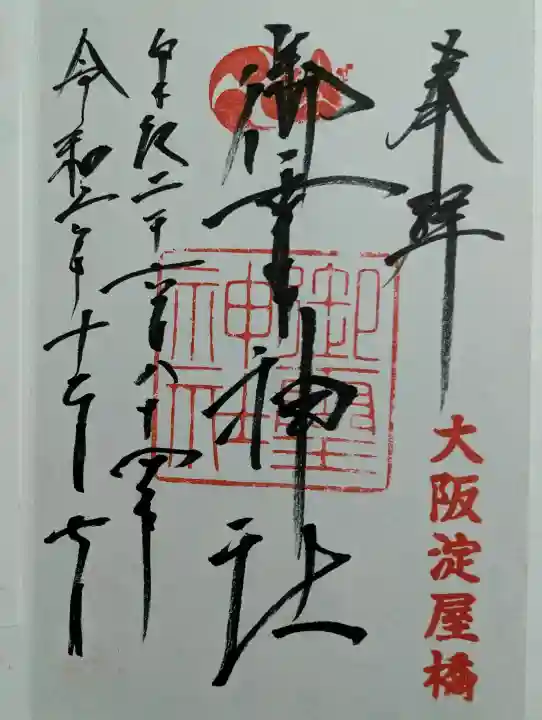 奉拝
大阪淀屋橋
御霊神社
御靈神社
皇紀二千六百八十四年
令和六年十二月七日